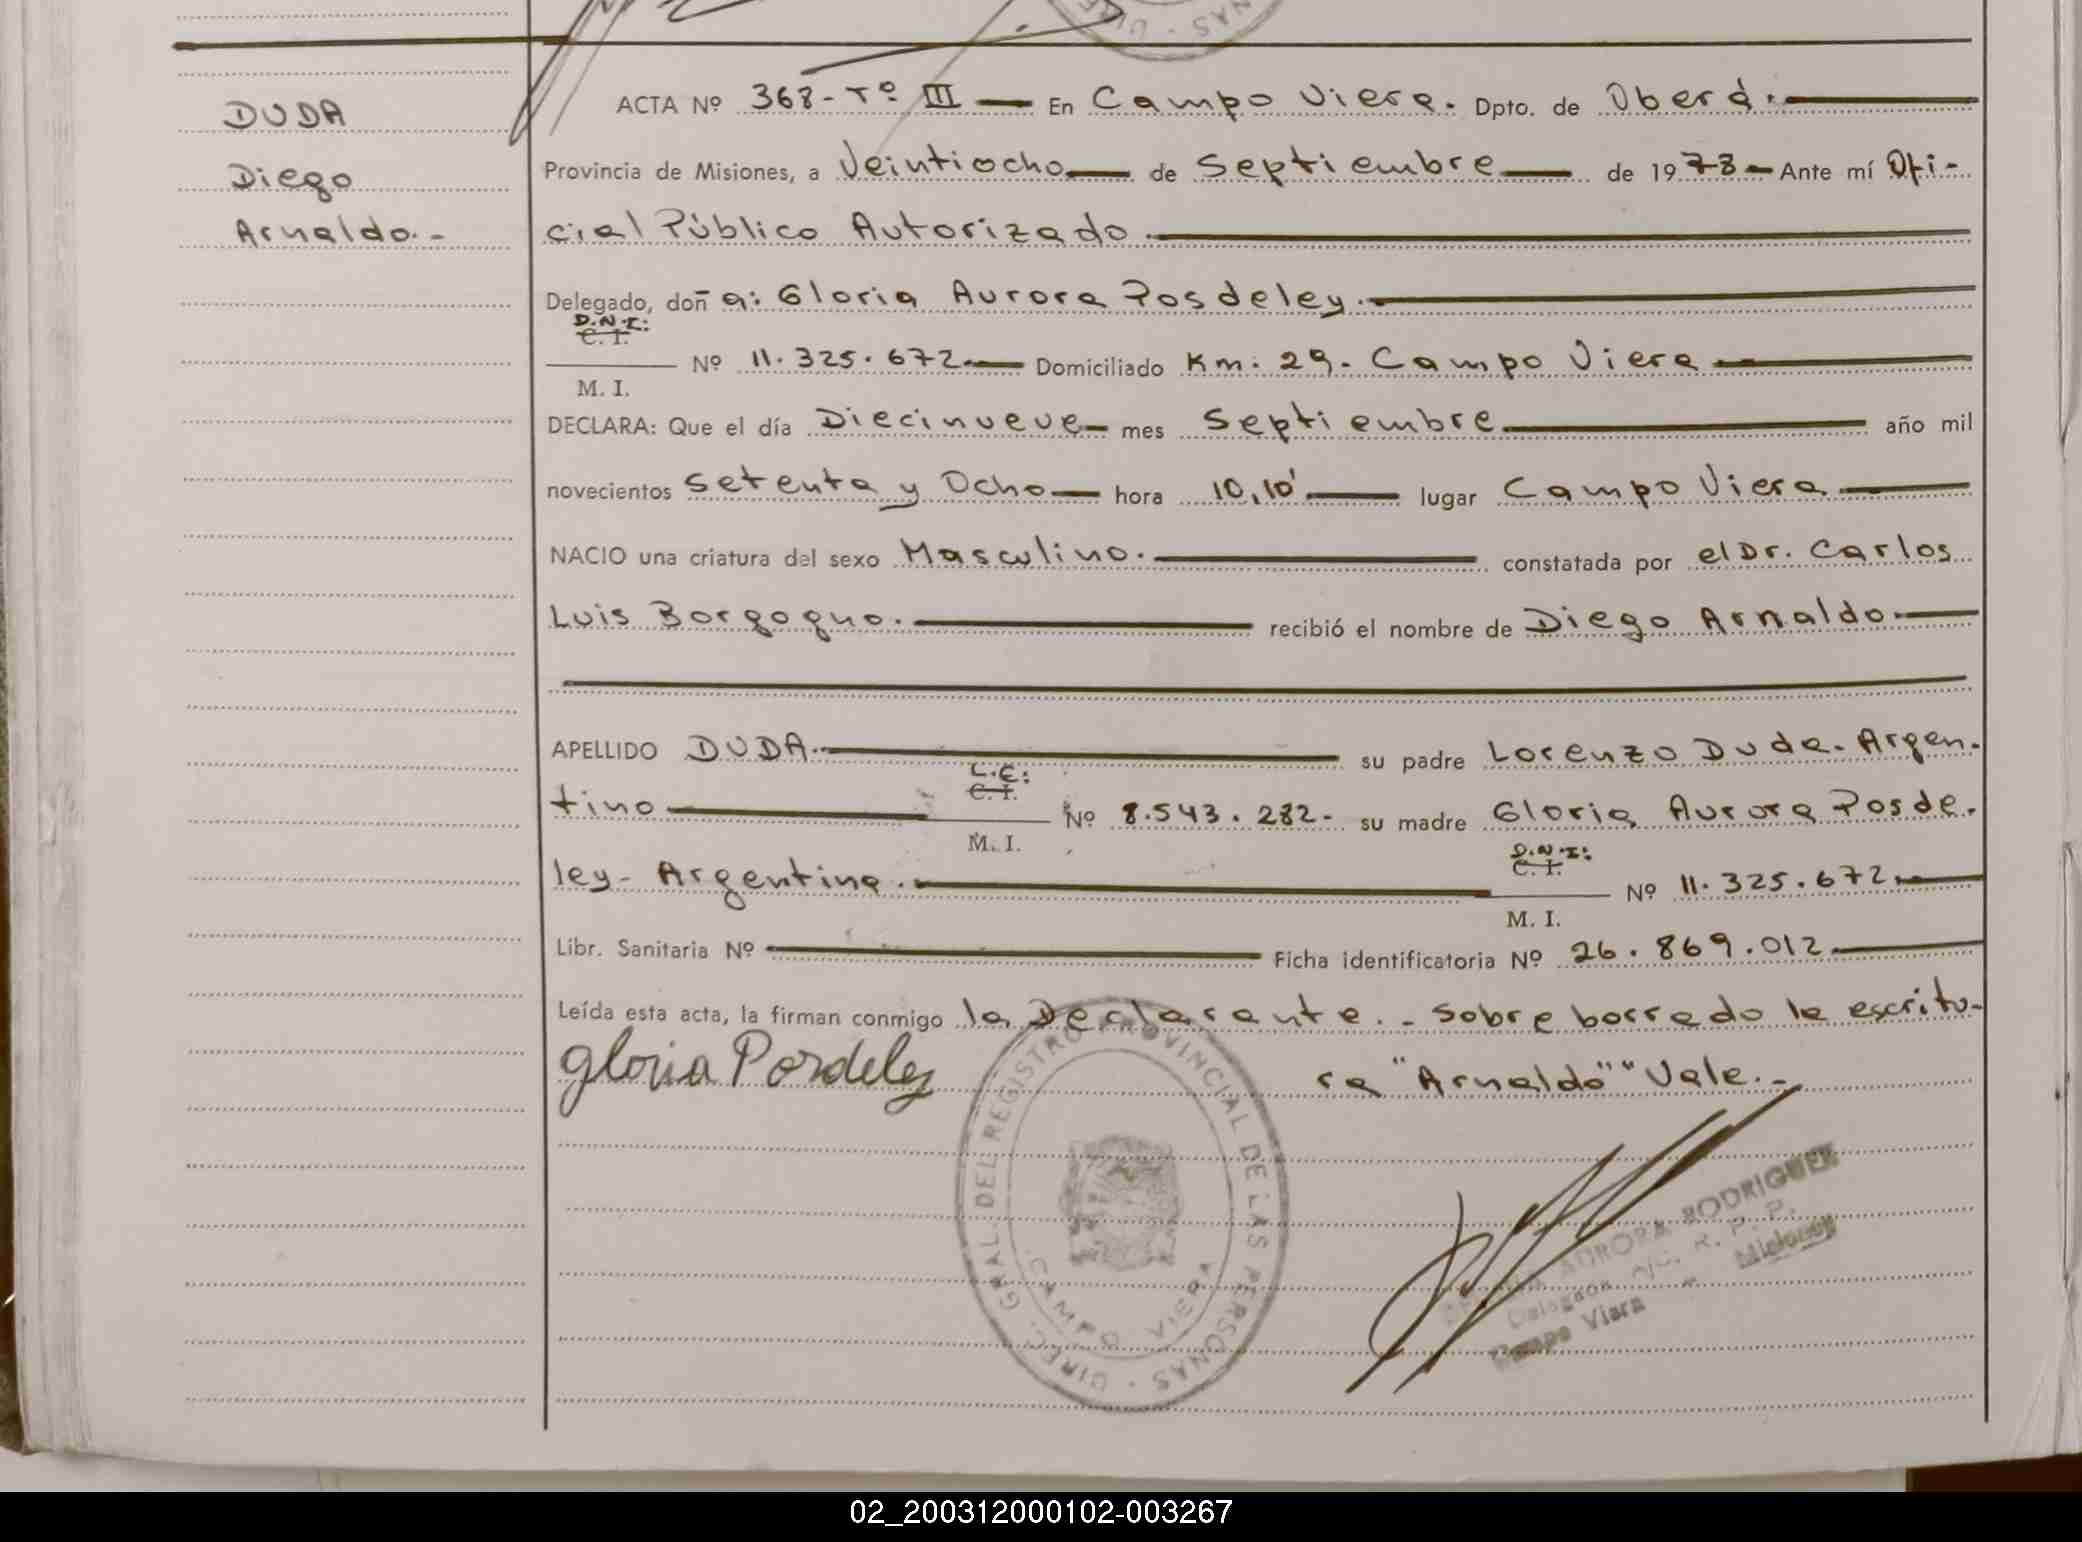 DUDA
Diego
Arnaldo.-
ACTA Nº 368-Tº III — En Campo Viera. Dpto. de Oberá.
Provincia de Misiones, a Veintiocho — de Septiembre — de 1978 - Ante mí Ofi-
cial Público Autorizado.
Delegado, doña: Gloria Aurora Posdeley.
D.N.I:
C. I.
Nº 11.325.672. — Domiciliado Km. 29. Campo Viera
M. I.
DECLARA: Que el día Diecinueve - mes Septiembre — año mil
novecientos Setenta y Ocho — hora 10,10' — lugar Campo Viera
NACIO una criatura del sexo Masculino. — constatada por el Dr. Carlos
Luis Borgogno. — recibió el nombre de Diego Arnaldo.
APELLIDO DUDA. — su padre Lorenzo Duda. Argen-
L.E:
C. I.
tino — Nº 8.543.282- su madre Gloria Aurora Posde-
M. I.
D.N.I:
C. I.
ley- Argentina. — Nº 11.325.672.
M. I.
Libr. Sanitaria Nº — Ficha identificatoria Nº 26.869.012.
Leída esta acta, la firman conmigo la Declarante. - Sobre borrado la escritu-
ra "Arnaldo" "Vale.-
Gloria Posdeley
DIREC. GRAL. DEL REGISTRO PROVINCIAL DE LAS PERSONAS
CAMPO VIERA
AURORA RODRIGUEZ
R. P. P.
Campo Viera Misiones
02_200312000102-003267